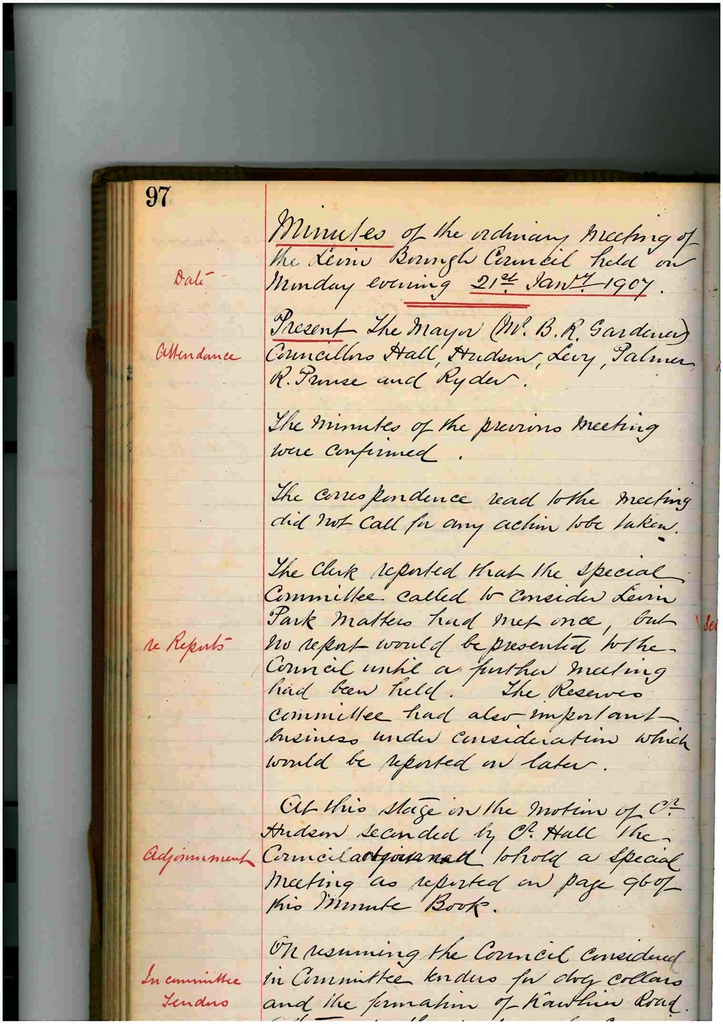 97
Minutes of the ordinary Meeting of
the Levin Borough Council held on
Date
Monday evening 21st Janry 1907.
Present The Mayor (Mr. B. R. Gardener)
Attendance
Councillors Hall, Hudson, Levy, Palmer
R. Prouse and Ryder.
The Minutes of the previous Meeting
were confirmed.
The correspondence read to the Meeting
did not call for any action to be taken.
The Clerk reported that the special
Committee called to consider Levin
Park Matters had met once, but
re Reports
no report would be presented to the
Council until a further Meeting
had been held. The Reserves
committee had also important
business under consideration which
would be reported on later.
At this stage on the motion of Cr.
Hudson seconded by Cr. Hall the
Adjournment
Council adjourned to hold a special
Meeting as reported on page 96 of
this Minute Book.
On resuming the Council considered
In committee
in Committee tenders for dog collars
Tenders
and the formation of Kawhiu Road.